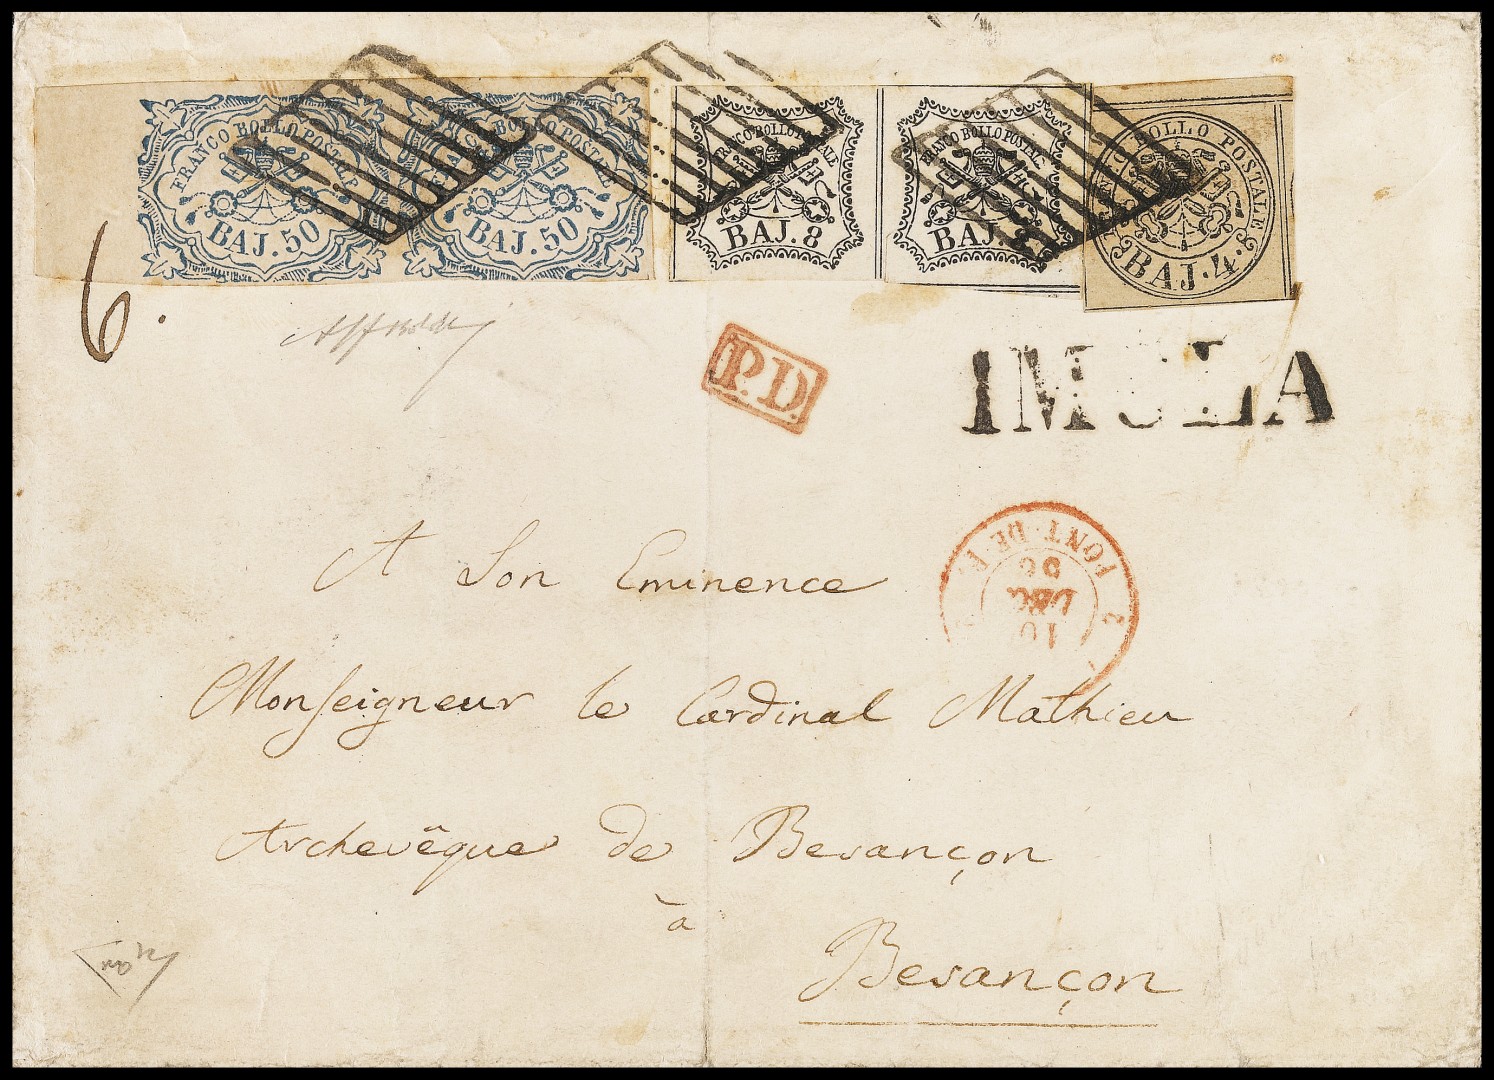 FRANCO BOLLO POSTALE
BAJ. 50
FRANCO BOLLO POSTALE
BAJ. 50
FRANCO BOLLO POSTALE
BAJ. 8
FRANCO BOLLO POSTALE
BAJ.
BOLLO POSTALE
BAJ. 4.
6.
P.D.
IMOLA
PONT-DE-
2
10
DEC
56
A Son Eminence
Monseigneur le Cardinal Mathieu
Archevêque de Besançon
à
Besançon